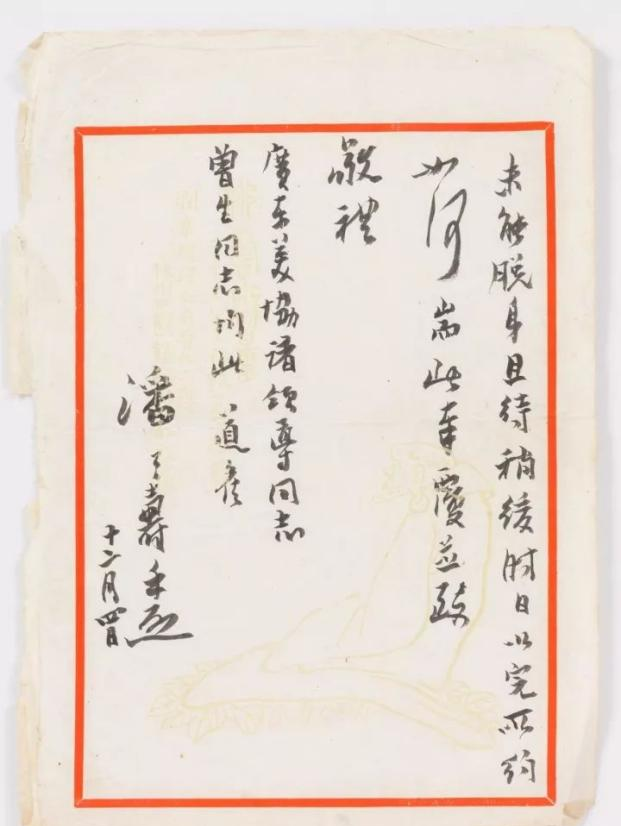 未能脱身且待稍緩時日以完所約
如何耑此奉覆並致
敬禮
廣东美協諸領導同志
曾生同志均此道候
潘天壽手啟
十二月四日